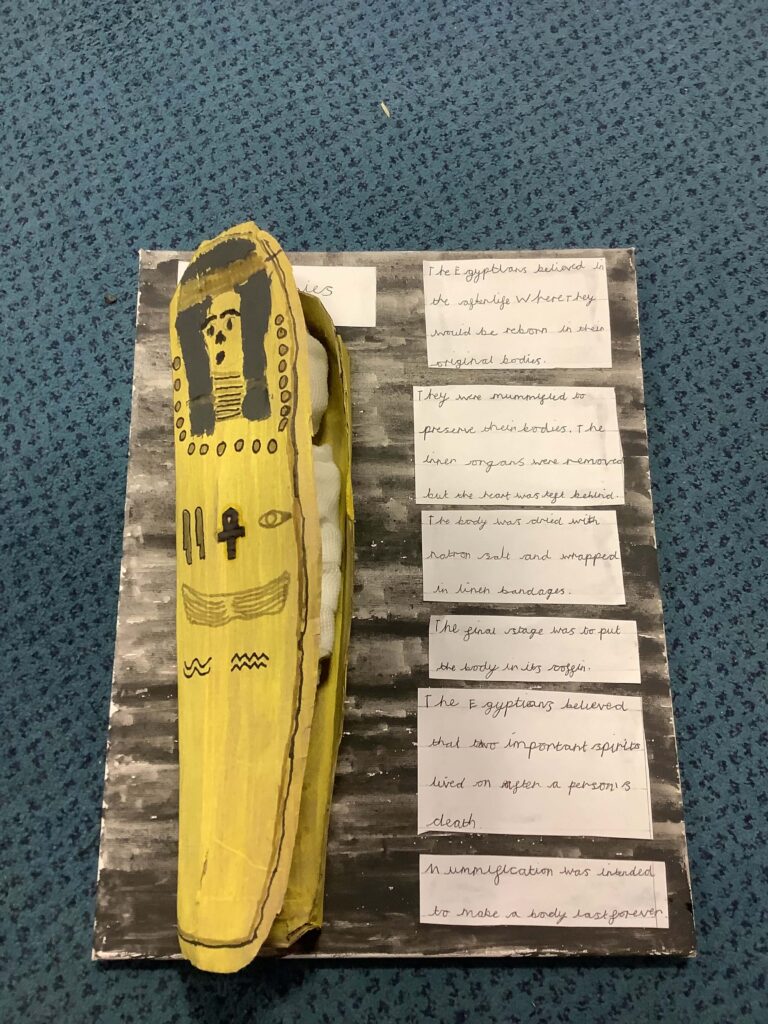 ies
The Egyptians believed in
the afterlife Where They
would be reborn in their
original bodies.
They were mummified to
preserve their bodies. The
inner organs were removed
but the heart was left behind.
The body was dried with
natron salt and wrapped
in linen bandages.
The final stage was to put
the body in its coffin.
The Egyptians believed
that two important spirits
lived on after a person's
death.
Mummification was intended
to make a body last forever.